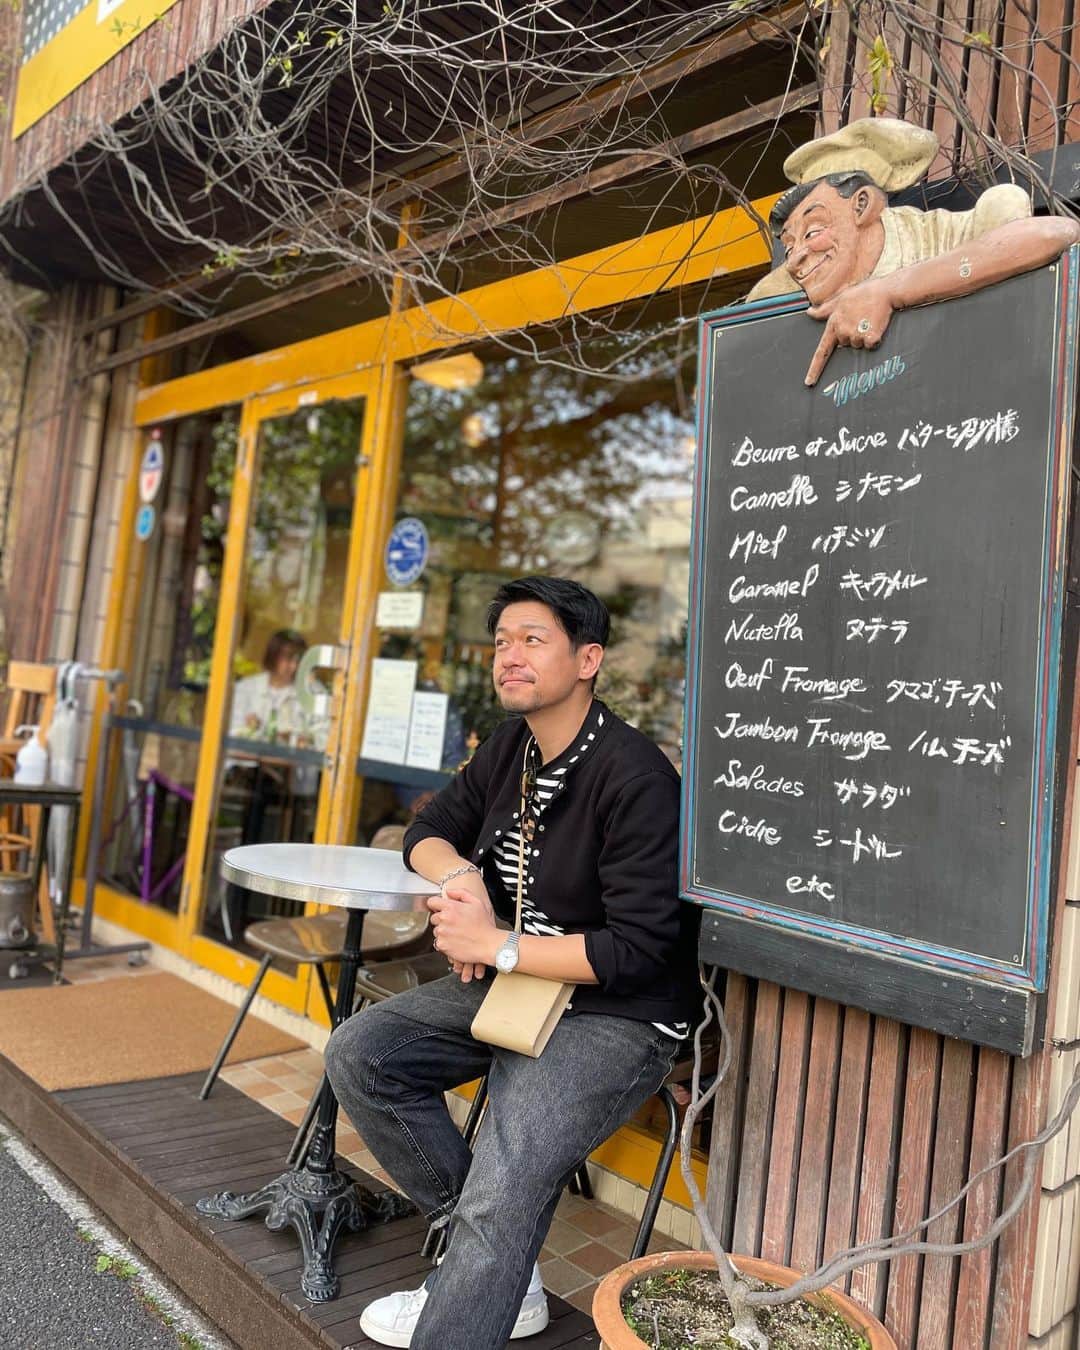 Menu
Beurre et Sucre バターと砂糖
Cannelle シナモン
Miel ハチミツ
Caramel キャラメル
Nutella ヌテラ
Oeuf Fromage タマゴ,チーズ
Jambon Fromage ハムチーズ
Salades サラダ
Cidre シードル
etc